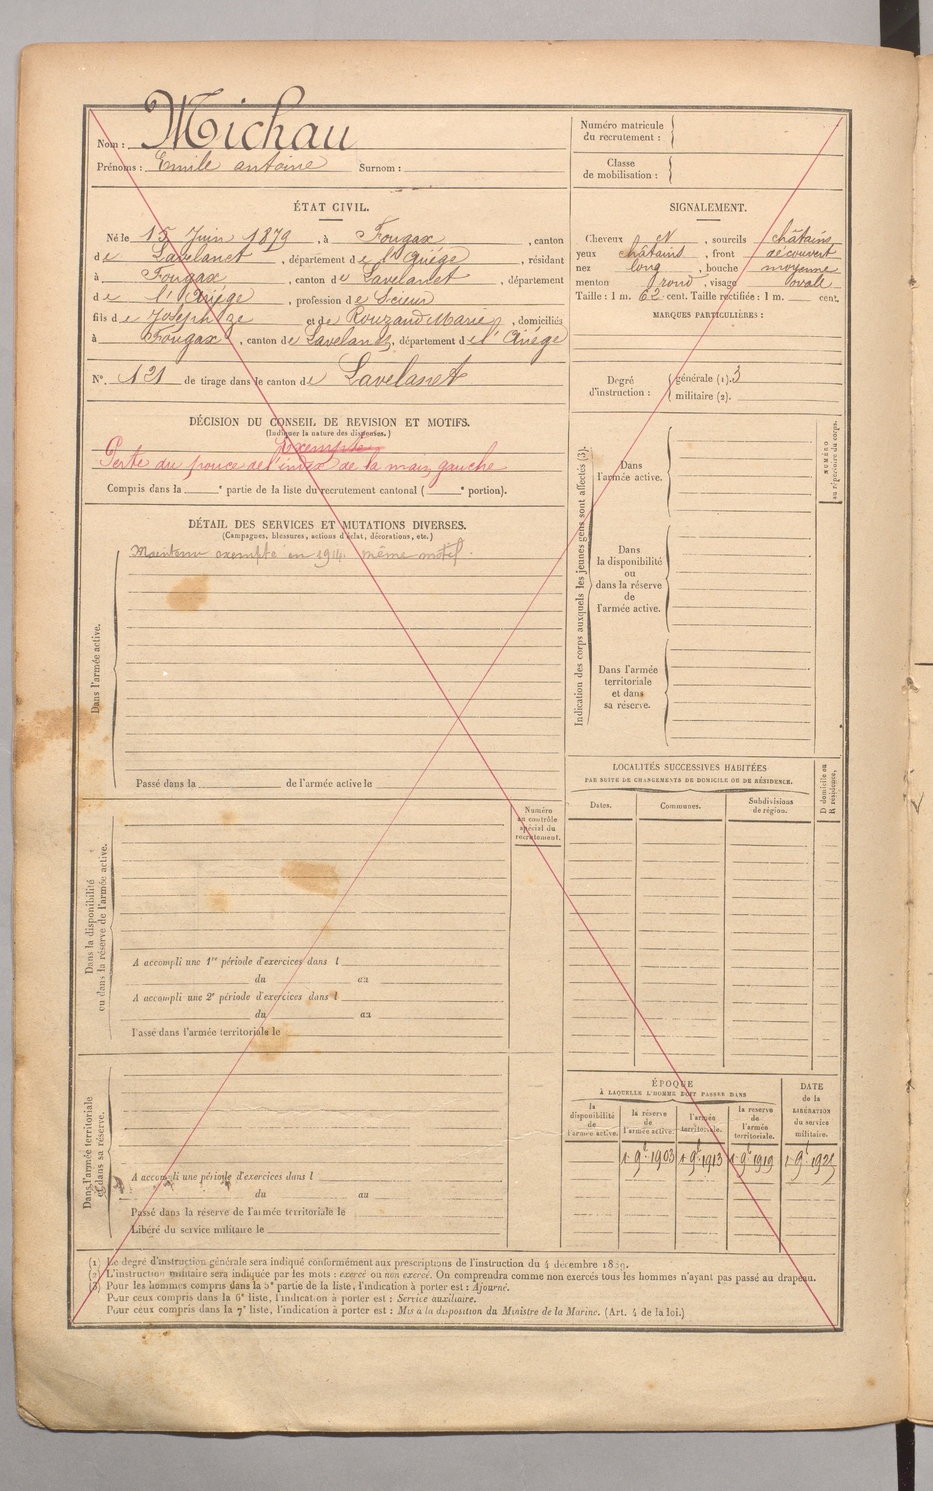 Nom : Michau
Prénoms : Emile antoine Surnom :
ÉTAT CIVIL.
Né le 15 Juin 1879, à Fougax, canton
de Lavelanet, département de l'Ariége, résidant
à Fougax, canton de Lavelanet, département
de l'Ariége, profession de Scieur
fils de Joseph et de Rouzaud Marie, domiciliés
à Fougax, canton de Lavelanet, département de l'Ariége
N°. 121 de tirage dans le canton de Lavelanet
DÉCISION DU CONSEIL DE REVISION ET MOTIFS.
(Indiquer la nature des dispenses.)
Exempté
Perte du pouce de l'index de la main gauche
Compris dans la ___e partie de la liste du recrutement cantonal ( ___e portion).
DÉTAIL DES SERVICES ET MUTATIONS DIVERSES.
(Campagnes, blessures, actions d'éclat, décorations, etc.)
Maintenu exempté en 1914. même motif.
Dans l'armée active.
Passé dans la ___ de l'armée active le
Numéro
au contrôle
spécial du
recrutement.
Dans la disponibilité
ou dans la réserve de l'armée active.
A accompli une 1re période d'exercices dans l
du au
A accompli une 2e période d'exercices dans l
du au
Passé dans l'armée territoriale le
Dans l'armée territoriale
et dans sa réserve.
A accompli une période d'exercices dans l
du au
Passé dans la réserve de l'armée territoriale le
Libéré du service militaire le
Numéro matricule
du recrutement :
Classe
de mobilisation :
SIGNALEMENT.
Cheveux et, sourcils châtains
yeux châtains, front découvert
nez long, bouche moyenne
menton rond, visage ovale
Taille : 1 m. 62 cent. Taille rectifiée : 1 m. ___ cent.
MARQUES PARTICULIÈRES :
Degré
d'instruction :
générale (1). 3
militaire (2).
Indication des corps auxquels les jeunes gens sont affectés (3).
NUMÉRO
au répertoire du corps.
Dans
l'armée active.
Dans
la disponibilité
ou
dans la réserve
de
l'armée active.
Dans l'armée
territoriale
et dans
sa réserve.
LOCALITÉS SUCCESSIVES HABITÉES
PAR SUITE DE CHANGEMENTS DE DOMICILE OU DE RÉSIDENCE.
Dates. Communes. Subdivisions
de région.
D domicile ou
R résidence.
ÉPOQUE
À LAQUELLE L'HOMME DOIT PASSER DANS
la
disponibilité
de
l'armée active.
la réserve
de
l'armée active.
l'armée
territoriale.
la reserve
de
l'armée
territoriale.
DATE
de la
LIBÉRATION
du service
militaire.
1 9e 1903 1 9e 1913 1 9e 1919 1 9e 1925
(1) Le degré d'instruction générale sera indiqué conformément aux prescriptions de l'instruction du 4 décembre 1889.
(2) L'instruction militaire sera indiquée par les mots : exercé ou non exercé. On comprendra comme non exercés tous les hommes n'ayant pas passé au drapeau.
(3) Pour les hommes compris dans la 5e partie de la liste, l'indication à porter est : Ajourné.
Pour ceux compris dans la 6e liste, l'indication à porter est : Service auxiliaire.
Pour ceux compris dans la 7e liste, l'indication à porter est : Mis à la disposition du Ministre de la Marine. (Art. 4 de la loi.)